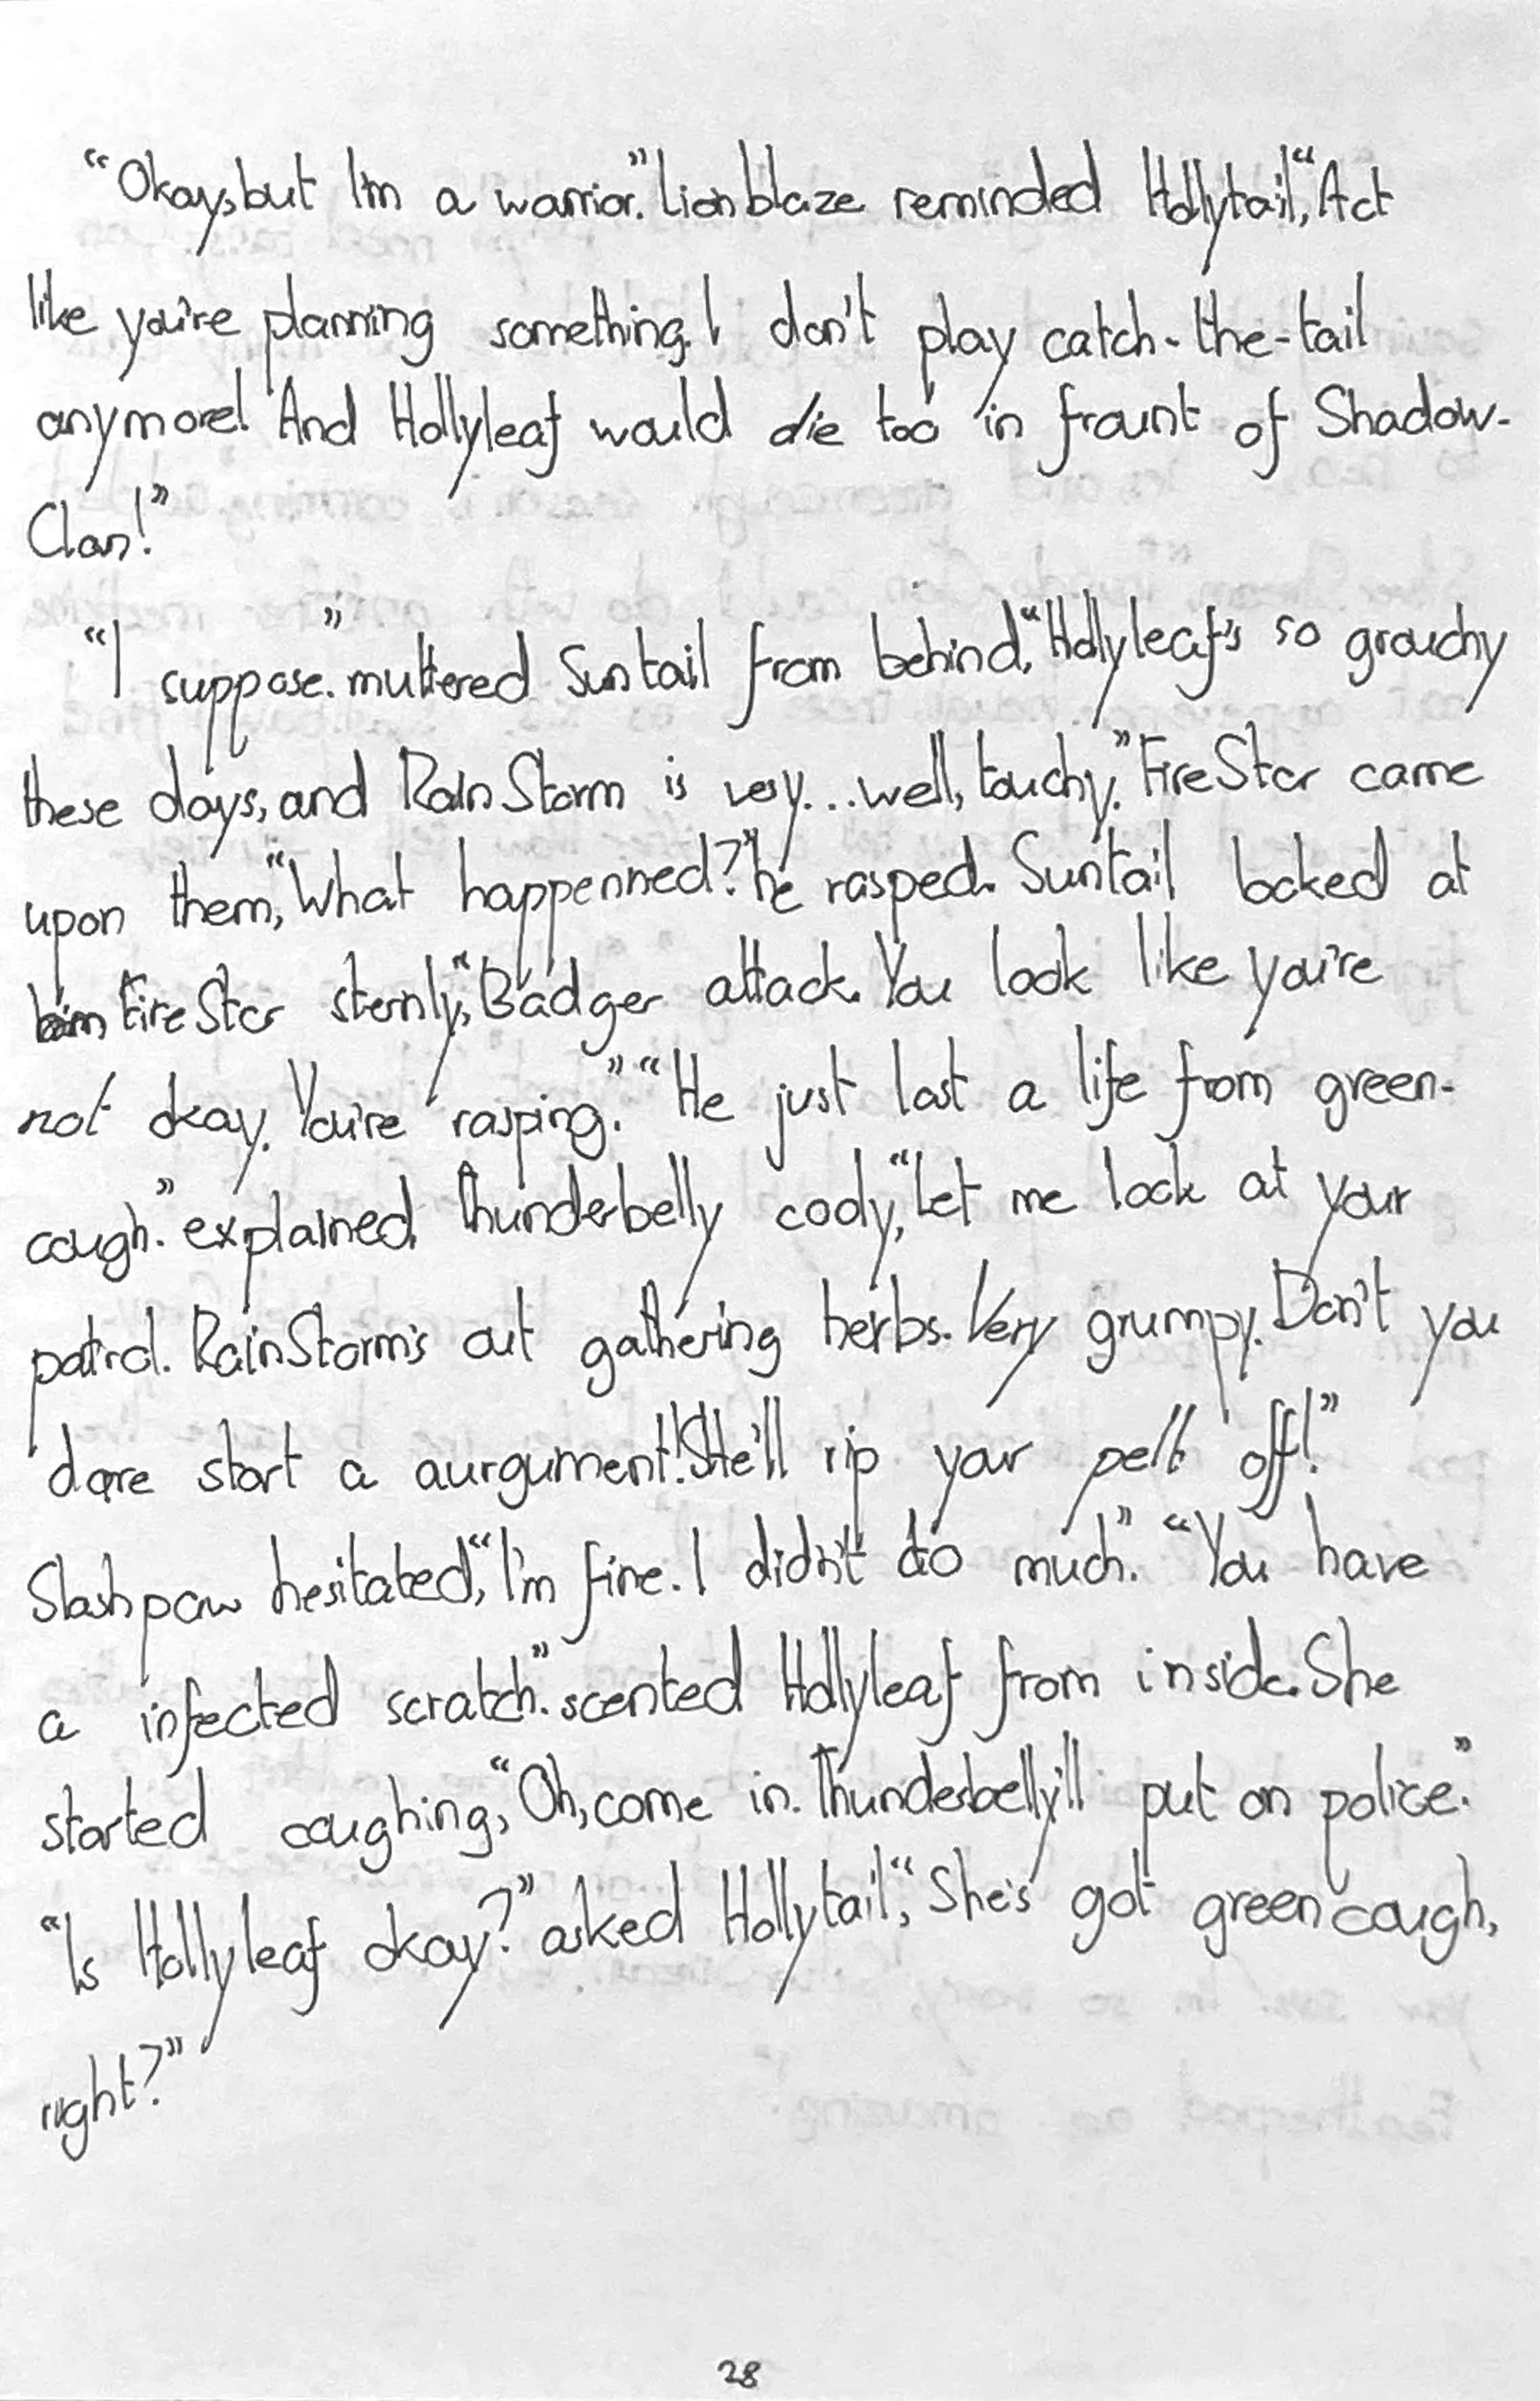 “Okay, but I'm a warrior.” Lionblaze reminded Hollytail, “Act
like you're planning something. I don't play catch-the-tail
anymore! And Hollyleaf would die too in fraunt of Shadow-
Clan!”
“I suppose.” muttered Suntail from behind, “Hollyleaf's so grouchy
these days, and RainStorm is very...well, touchy.” FireStar came
upon them, “What happenned?” he rasped. Suntail looked at
FireStar sternly, “Badger attack. You look like you're
not okay. You're rasping.” “He just lost a life from green-
cough.” explained Thunderbelly cooly, “Let me look at your
patrol. RainStorm's out gathering herbs. Very grumpy. Don't you
dare start a aurgument! She'll rip your pelt off!”
Slashpaw hesitated, “I'm fine. I didn't do much.” “You have
a infected scratch.” scented Hollyleaf from inside. She
started coughing, “Oh, come in. Thunderbelly'll put on police.”
“Is Hollyleaf okay?” asked Hollytail, “She's got greencough,
right?”
28